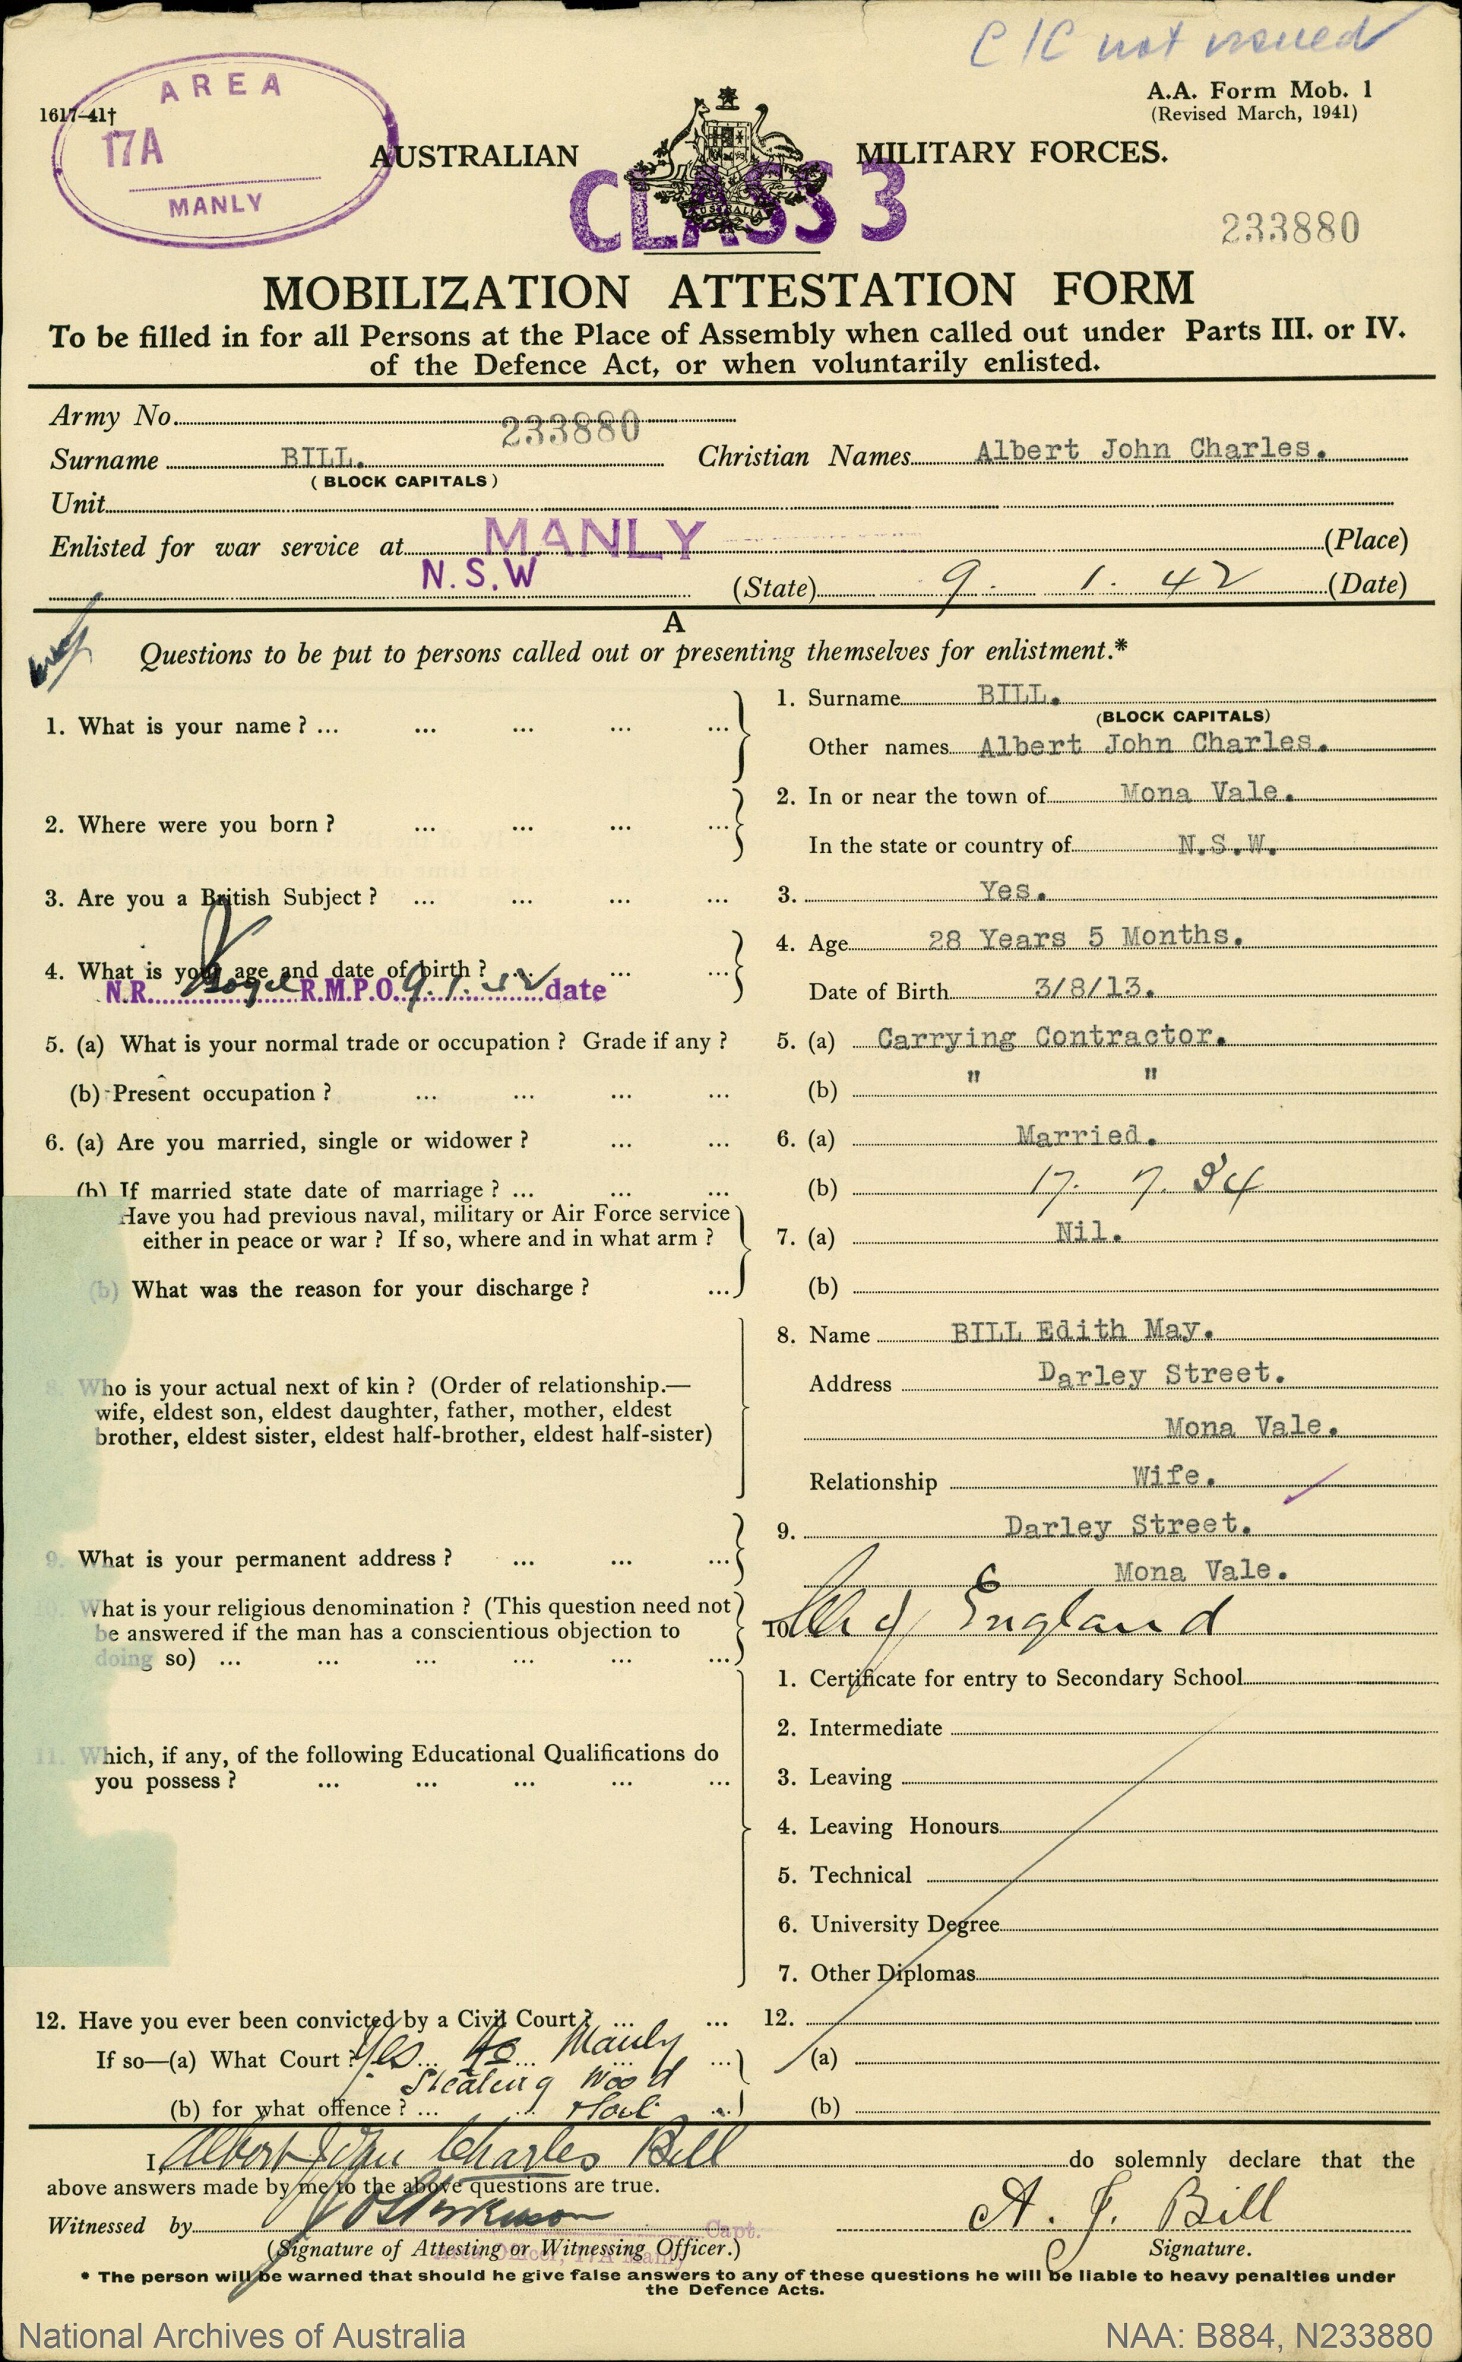 C/C not issued
AREA
17A
MANLY
1617—41†
A.A. Form Mob. 1
(Revised March, 1941)
AUSTRALIAN MILITARY FORCES.
AUSTRALIA
CLASS 3
233880
MOBILIZATION ATTESTATION FORM
To be filled in for all Persons at the Place of Assembly when called out under Parts III. or IV.
of the Defence Act, or when voluntarily enlisted.
Army No. 233880
Surname BILL. Christian Names Albert John Charles.
(BLOCK CAPITALS)
Unit
Enlisted for war service at MANLY (Place)
N.S.W (State) 9. 1. 42 (Date)
A
Questions to be put to persons called out or presenting themselves for enlistment.*
1. What is your name? ... ... ... ... ... 1. Surname BILL.
(BLOCK CAPITALS)
Other names Albert John Charles.
2. Where were you born? ... ... ... ... 2. In or near the town of Mona Vale.
In the state or country of N.S.W.
3. Are you a British Subject? ... ... ... ... 3. Yes.
4. What is your age and date of birth? ... ... ... 4. Age 28 Years 5 Months.
N.R. R.M.P.O. 9.1.42 date
Date of Birth 3/8/13.
5. (a) What is your normal trade or occupation? Grade if any? 5. (a) Carrying Contractor.
(b) Present occupation? ... ... ... ... (b) " "
6. (a) Are you married, single or widower? ... ... 6. (a) Married.
(b) If married state date of marriage? ... ... ... (b) 17. 7. 34
Have you had previous naval, military or Air Force service
either in peace or war? If so, where and in what arm? 7. (a) Nil.
(b) What was the reason for your discharge? ... (b)
8. Name BILL Edith May.
8. Who is your actual next of kin? (Order of relationship.— Address Darley Street.
wife, eldest son, eldest daughter, father, mother, eldest
brother, eldest sister, eldest half-brother, eldest half-sister) Mona Vale.
Relationship Wife.
9. Darley Street.
9. What is your permanent address? ... ... ... Mona Vale.
10. What is your religious denomination? (This question need not
be answered if the man has a conscientious objection to 10. Ch of England
doing so) ... ... ... ... ... ...
1. Certificate for entry to Secondary School
2. Intermediate
11. Which, if any, of the following Educational Qualifications do
you possess? ... ... ... ... ... 3. Leaving
4. Leaving Honours
5. Technical
6. University Degree
7. Other Diplomas
12. Have you ever been convicted by a Civil Court? ... ... 12.
If so—(a) What Court? Yes Manly ... (a)
Stealing Wood
(b) for what offence? ... ... (b)
I, Albert John Charles Bill do solemnly declare that the
above answers made by me to the above questions are true.
Witnessed by Capt. A. J. Bill
Area Officer, 17A Manly
(Signature of Attesting or Witnessing Officer.) Signature.
* The person will be warned that should he give false answers to any of these questions he will be liable to heavy penalties under
the Defence Acts.
National Archives of Australia NAA: B884, N233880